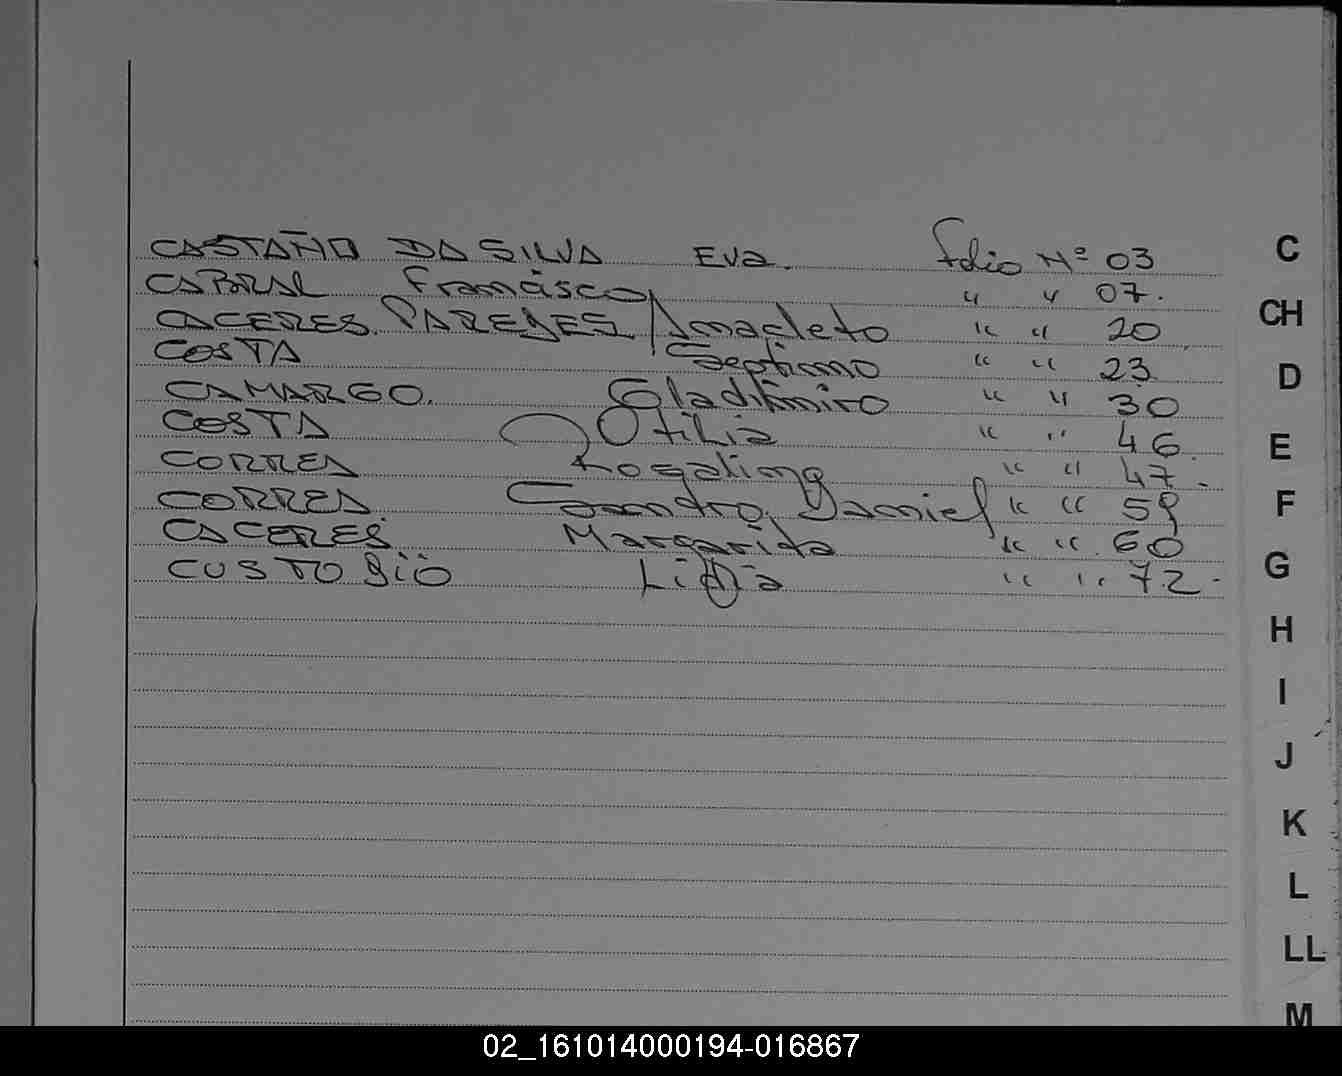 CASTAÑO DA SILVA EVA. Folio Nº 03
CABRAL Francisco " " 07.
CACERES PAREDES Anacleto " " 20
COSTA Septimo " " 23
CAMARGO. Gladimiro " " 30
COSTA Otilia " " 46
CORREA Rogelina " " 47.
CORREA Sandro Daniel " " 59
CACERES Margarita " " 60
CUSTODIO Lidia " " 72.
C
CH
D
E
F
G
H
I
J
K
L
LL
M
02_161014000194-016867